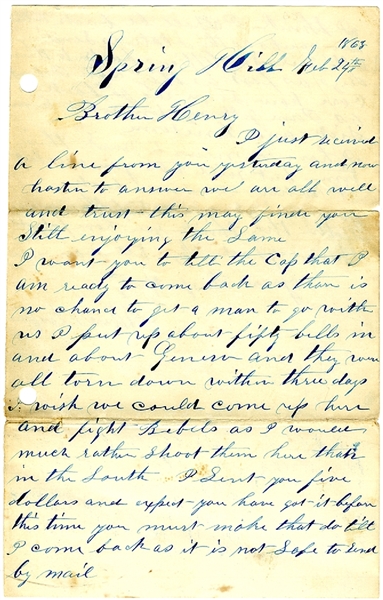 1863
Spring Hill Feb 24th
Brother Henry
I just receivd
a line from you yesterday and now
hasten to answer we are all well
and trust this may finde you
Still enjoying the Same
I want you to tell the Cap that I
am ready to come back as thair is
no chance to get a man to go with
us I put up about fifty bills in
and about Genevo and they were
all torn down within three days
I wish we could come up here
and fight Rebels as I would
much rather Shoot them here than
in the South I Sent you five
dollars and expect you have got it before
this time you must make that do till
I come back as it is not Safe to Send
by mail